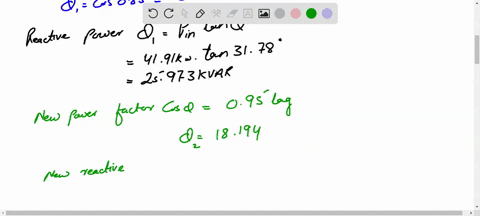 Φ₁ = cos 0.85 =
Reactive power Φ₁ = Pin tanΦ
= 41.91kw. tan 31.78°
= 25.973 KVAR
New power factor Cosθ = 0.95 lag
Φ₂ = 18.194
New reactive